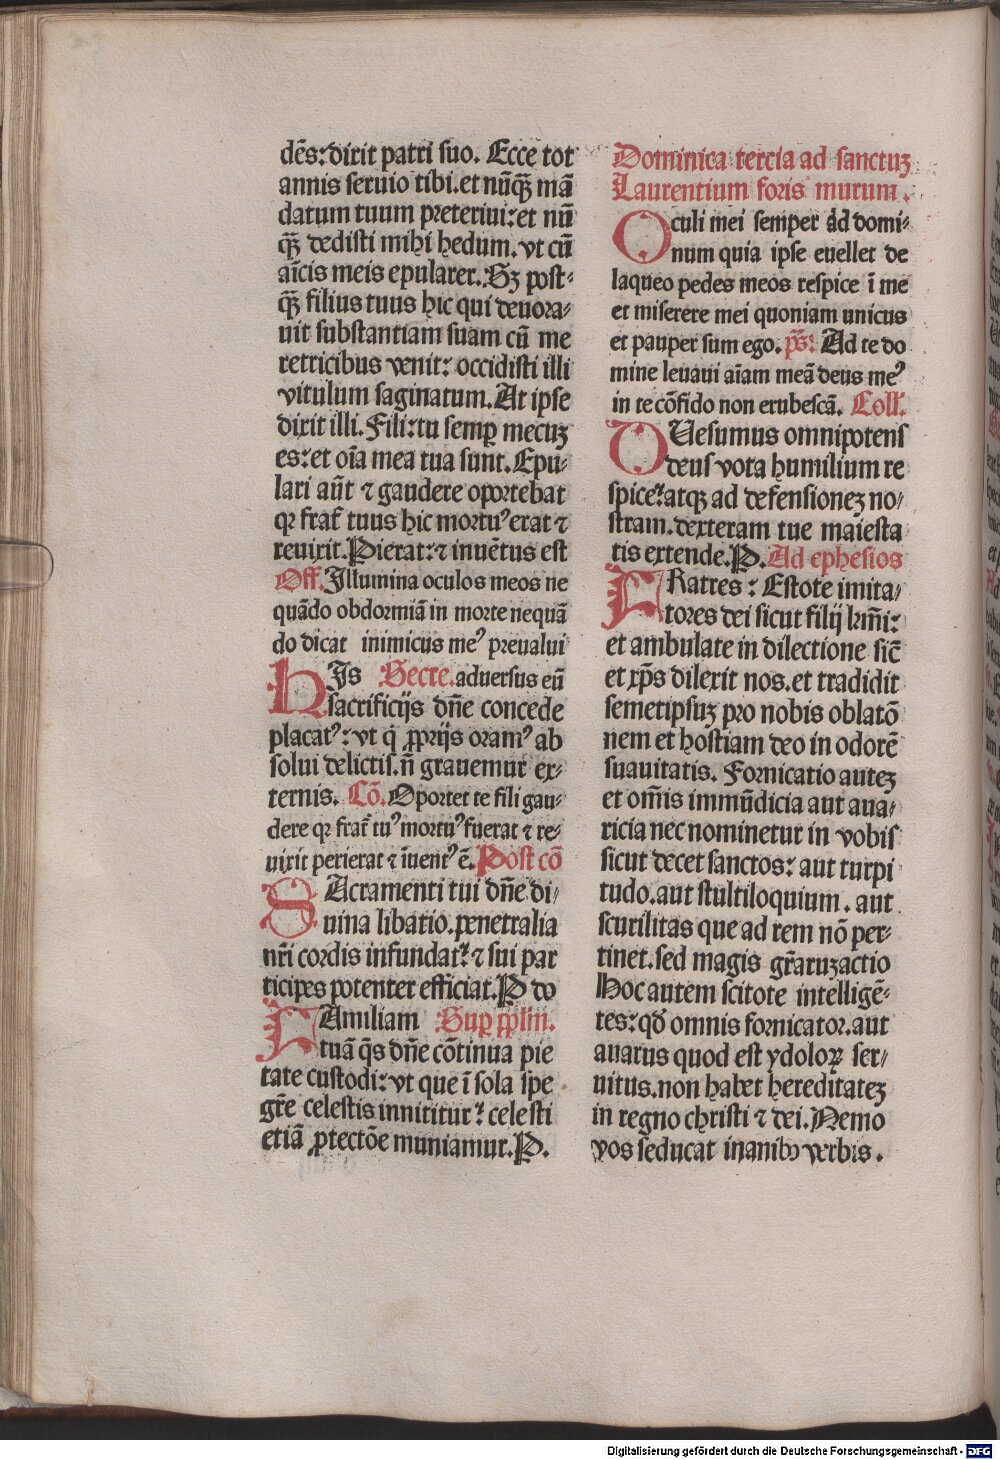 dēs: dixit patri suo. Ecce tot
annis seruio tibi. et nūqꝫ mā
datum tuum preteriui: et nū
qꝫ dedisti mihi hedum. vt cū
aīcis meis epularer. Sꝫ post-
qꝫ filius tuus hic qui deuora/
uit substantiam suam cū me
retricibus venit: occidisti illi
vitulum saginatum. At ipse
dixit illi. Fili: tu semꝑ mecuꝫ
es: et oīa mea tua sunt. Epu-
lari aūt ⁊ gaudere oportebat
qꝛ frat̄ tuus hic mortuꝰ erat ⁊
reuixit. Pierat: ⁊ inuētus est
Off. Illumina oculos meos ne
quādo obdormiā in morte nequā
do dicat inimicus meꝰ preualui
hIs Secre. aduersus eū
sacrificijs dn̄e concede
placatꝰ: vt q̇ ꝓprijs oramꝰ ab
solui delictis. n̄ grauemur ex-
ternis. Cō. Oportet te fili gau-
dere qꝛ frat̄ tuꝰ mortuꝰ fuerat ⁊ re-
uixit perierat ⁊ īuentꝰ ē. Post cō
SAcramenti tui dn̄e di/
uina libatio. penetralia
nr̄i cordis infundat᷑: ⁊ sui par
ticipes potenter efficiat. P do
FAmiliam Suꝑ pplm̄.
tuā q̄s dn̄e cōtinua pie
tate custodi: vt que ī sola spe
gr̄e celestis innititur: celesti
etiā ꝓtectōe muniamur. P.
Dominica tercia ad sanctuꝫ
Laurentium foris murum.
Oculi mei semper ad domi-
num quia ipse euellet de
laqueo pedes meos respice ī me
et miserere mei quoniam unicus
et pauper sum ego. p̄s: Ad te do
mine leuaui aīam meā deus meꝰ
in te cōfido non erubescā. Coll.
QUesumus omnipotens
deus vota humilium re
spice: atqꝫ ad defensioneꝫ no/
stram. dexteram tue maiesta
tis extende. P. Ad ephesios
FRatres: Estote imita/
tores dei sicut filij krm̄i:
et ambulate in dilectione sic̄
et xp̄s dilexit nos. et tradidit
semetipsuꝫ pro nobis oblatō
nem et hostiam deo in odorē
suauitatis. Fornicatio auteꝫ
et om̄is immūdicia aut aua/
ricia nec nominetur in vobis
sicut decet sanctos: aut turpi
tudo. aut stultiloquium. aut
scurilitas que ad rem nō per-
tinet. sed magis gr̄aruꝫactio
Hoc autem scitote intelligē-
tes: qđ omnis fornicator. aut
auarus quod est ydoloꝝ ser/
uitus. non habet hereditateꝫ
in regno christi ⁊ dei. Nemo
vos seducat inanibꝰ verbis.
Digitalisierung gefördert durch die Deutsche Forschungsgemeinschaft - DFG